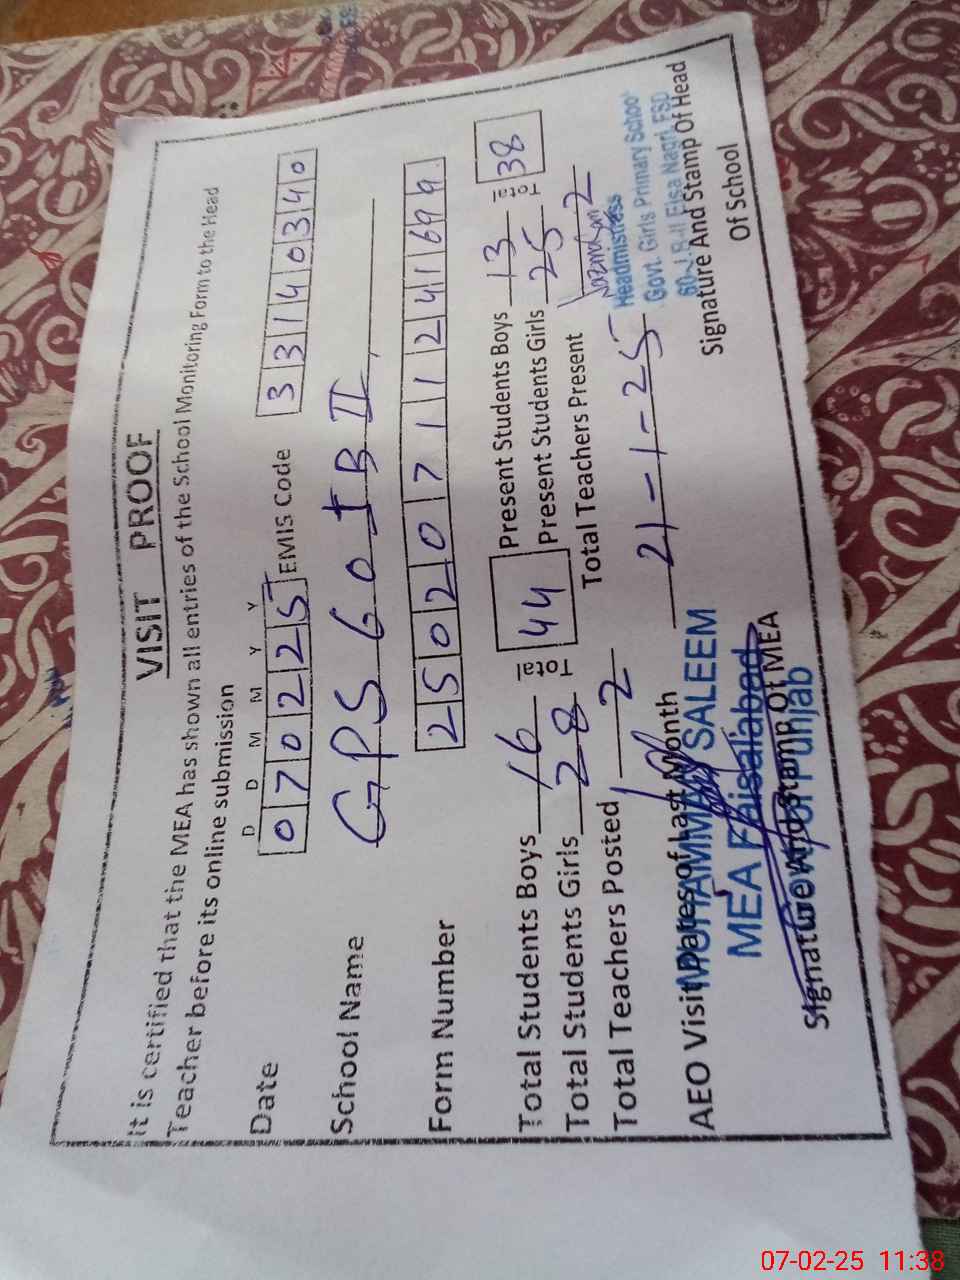 VISIT PROOF
It is certified that the MEA has shown all entries of the School Monitoring Form to the Head
Teacher before its online submission
D D M M Y Y
Date 070225 EMIS Code 33140340
School Name GPS 60 JB II
Form Number 2502071124169
Total Students Boys 16 Total 44 Present Students Boys 13 Total 38
Total Students Girls 28 Present Students Girls 25
Total Teachers Posted 2 Total Teachers Present 2
AEO Visit Dates of Last Month 21-1-25
MUHAMMAD SALEEM
MEA Faisalabad
Govt. of Punjab
Signature And Stamp Of MEA
Headmistress
Govt. Girls Primary School
60-J.B-II Eisa Nagri, FSD
Signature And Stamp Of Head
Of School
07-02-25 11:38